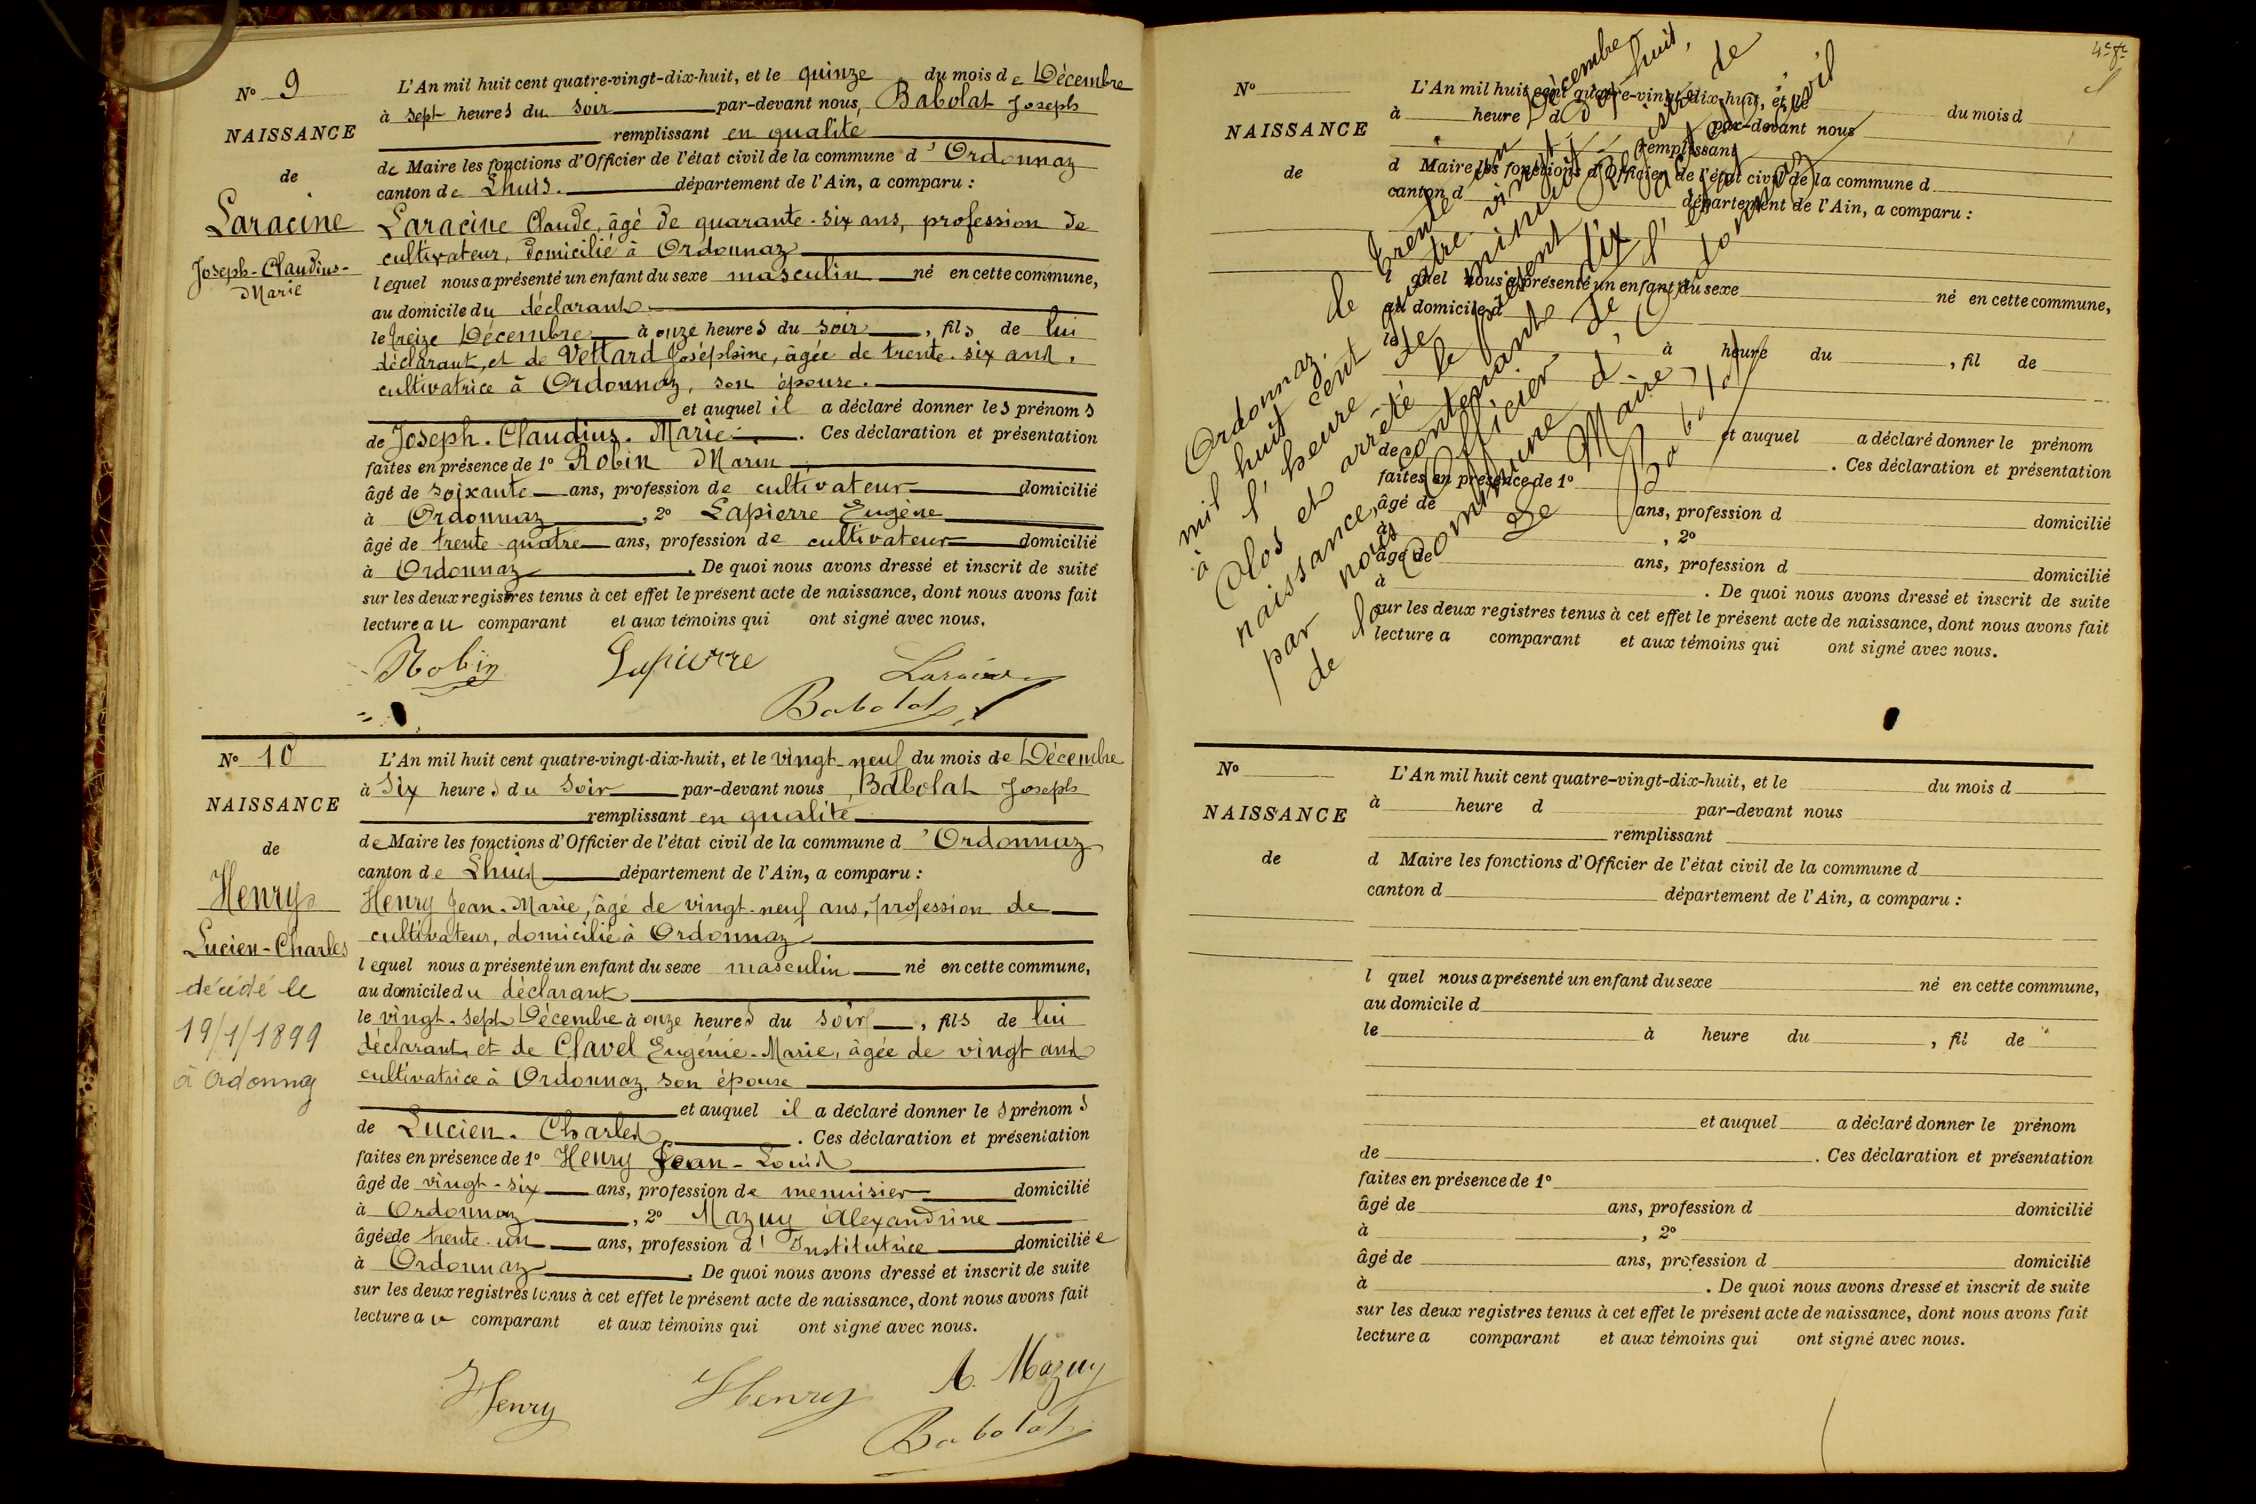 N° 9
NAISSANCE
de
Laracine
Joseph-Claudius-
Marie
L'An mil huit cent quatre-vingt-dix-huit, et le quinze du mois de Décembre
à sept heures du soir par-devant nous, Babolat Joseph
remplissant en qualité
de Maire les fonctions d'Officier de l'état civil de la commune d'Ordonnaz
canton de Lhuis. département de l'Ain, a comparu :
Laracine Claude, âgé de quarante-six ans, profession de
cultivateur, domicilié à Ordonnaz
lequel nous a présenté un enfant du sexe masculin né en cette commune,
au domicile du déclarant
le treize Décembre à onze heures du soir, fils de lui
déclarant, et de Vettard Joséphine, âgée de trente-six ans,
cultivatrice à Ordonnaz, son épouse.
et auquel il a déclaré donner les prénoms
de Joseph-Claudius-Marie. Ces déclaration et présentation
faites en présence de 1° Robin Marin
âgé de soixante ans, profession de cultivateur domicilié
à Ordonnaz, 2° Lapierre Eugène
âgé de trente-quatre ans, profession de cultivateur domicilié
à Ordonnaz. De quoi nous avons dressé et inscrit de suite
sur les deux registres tenus à cet effet le présent acte de naissance, dont nous avons fait
lecture au comparant et aux témoins qui ont signé avec nous.
Robin Lapierre Laracine
Babolat
N° 10
NAISSANCE
de
Henry
Lucien-Charles
décédé le
19/1/1899
à Ordonnaz
L'An mil huit cent quatre-vingt-dix-huit, et le vingt-neuf du mois de Décembre
à six heures du soir par-devant nous, Babolat Joseph
remplissant en qualité
de Maire les fonctions d'Officier de l'état civil de la commune d'Ordonnaz
canton de Lhuis département de l'Ain, a comparu :
Henry Jean-Marie, âgé de vingt-neuf ans, profession de
cultivateur, domicilié à Ordonnaz
lequel nous a présenté un enfant du sexe masculin né en cette commune,
au domicile du déclarant
le vingt-sept Décembre à onze heures du soir, fils de lui
déclarant, et de Clavel Eugénie-Marie, âgée de vingt ans
cultivatrice à Ordonnaz, son épouse
et auquel il a déclaré donner les prénoms
de Lucien-Charles. Ces déclaration et présentation
faites en présence de 1° Henry Jean-Louis
âgé de vingt-six ans, profession de menuisier domicilié
à Ordonnaz, 2° Mazuy Alexandrine
âgée de trente-un ans, profession d'Institutrice domiciliée
à Ordonnaz. De quoi nous avons dressé et inscrit de suite
sur les deux registres tenus à cet effet le présent acte de naissance, dont nous avons fait
lecture au comparant et aux témoins qui ont signé avec nous.
Henry Henry A. Mazuy
Babolat
N°
NAISSANCE
de
L'An mil huit cent quatre-vingt-dix-huit, et le du mois d
à heure d par-devant nous
remplissant
d Maire les fonctions d'Officier de l'état civil de la commune d
canton d département de l'Ain, a comparu :
l quel nous a présenté un enfant du sexe né en cette commune,
au domicile d
le à heure du , fil de
et auquel a déclaré donner le prénom
de . Ces déclaration et présentation
faites en présence de 1°
âgé de ans, profession d domicilié
à , 2°
âgé de ans, profession d domicilié
à . De quoi nous avons dressé et inscrit de suite
sur les deux registres tenus à cet effet le présent acte de naissance, dont nous avons fait
lecture a comparant et aux témoins qui ont signé avec nous.
Ordonnaz, de trente un Décembre
mil huit cent quatre vingt dix huit,
à l'heure de minuit
Clos et arrêté le présent registre de
naissance, contenant dix actes
par nous Officier de l'état civil
de la Commune d'Ordonnaz
Le Maire
Babolat
N°
NAISSANCE
de
L'An mil huit cent quatre-vingt-dix-huit, et le du mois d
à heure d par-devant nous
remplissant
d Maire les fonctions d'Officier de l'état civil de la commune d
canton d département de l'Ain, a comparu :
l quel nous a présenté un enfant du sexe né en cette commune,
au domicile d
le à heure du , fil de
et auquel a déclaré donner le prénom
de . Ces déclaration et présentation
faites en présence de 1°
âgé de ans, profession d domicilié
à , 2°
âgé de ans, profession d domicilié
à . De quoi nous avons dressé et inscrit de suite
sur les deux registres tenus à cet effet le présent acte de naissance, dont nous avons fait
lecture a comparant et aux témoins qui ont signé avec nous.